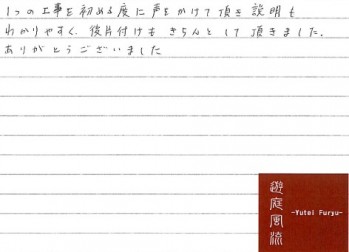 1つの工事を初める度に声をかけて頂き説明も
わかりやすく、後片付けもきちんとして頂きました。
ありがとうございました
遊庭風流
-Yutei Furyu-